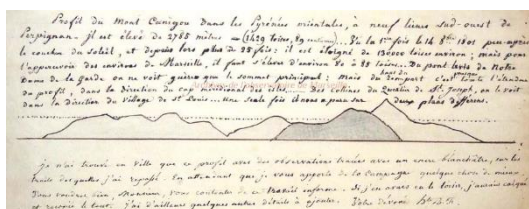 Profil du Mont Canigou dans les Pyrénées orientales, à neuf lieues Sud-ouest de
Perpignan. Il est élevé de 2785 mètres = (1429 toises, ... Vu la 1re fois le 14 8bre 1801 peu-après
le coucher du Soleil, et depuis lors plus de 25 fois: il est éloigné de 130000 toises-environ; mais pour
l'appercevoir des environs de Marseille, il faut s'élever d'environ 80 à 85 toises. Du pont levis de Notre
Dame de la Garde on ne voit guère que le sommet principal; mais du rempart c'est toute l'étendue
du profil, dans la direction du cap des isles. Des collines du haut du quartier de St. Joseph, on le voit
dans la direction du village de St. Louis. Une seule fois il nous a paru sur deux plans différens.
Je n'ai trouvé en ville que ce profil avec des observations tracées avec un encre blanchâtre, sur les
traits desquelles j'ai repassé. En attendant que je vous apporte de la Campagne quelque chose de mieux
Vous voudrez bien, Monsieur, vous contenter de ce travail informe. Si j'en avais eu le loisir, j'aurais
et le tout: j'ai d'ailleurs quelques autres détails à ajouter. Votre dévoué